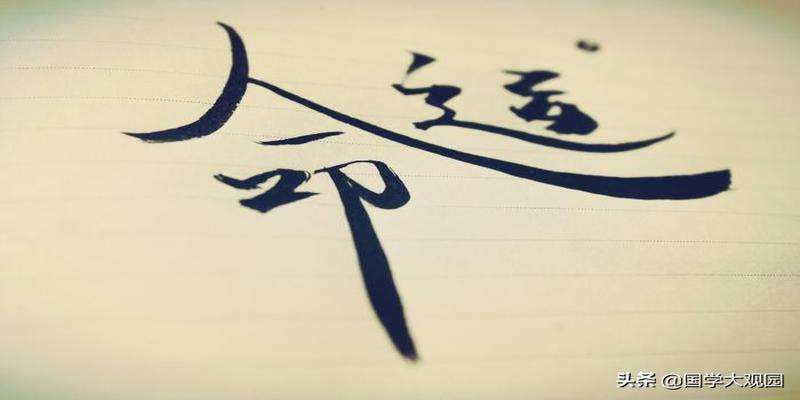 命运
头条 @国学大观园